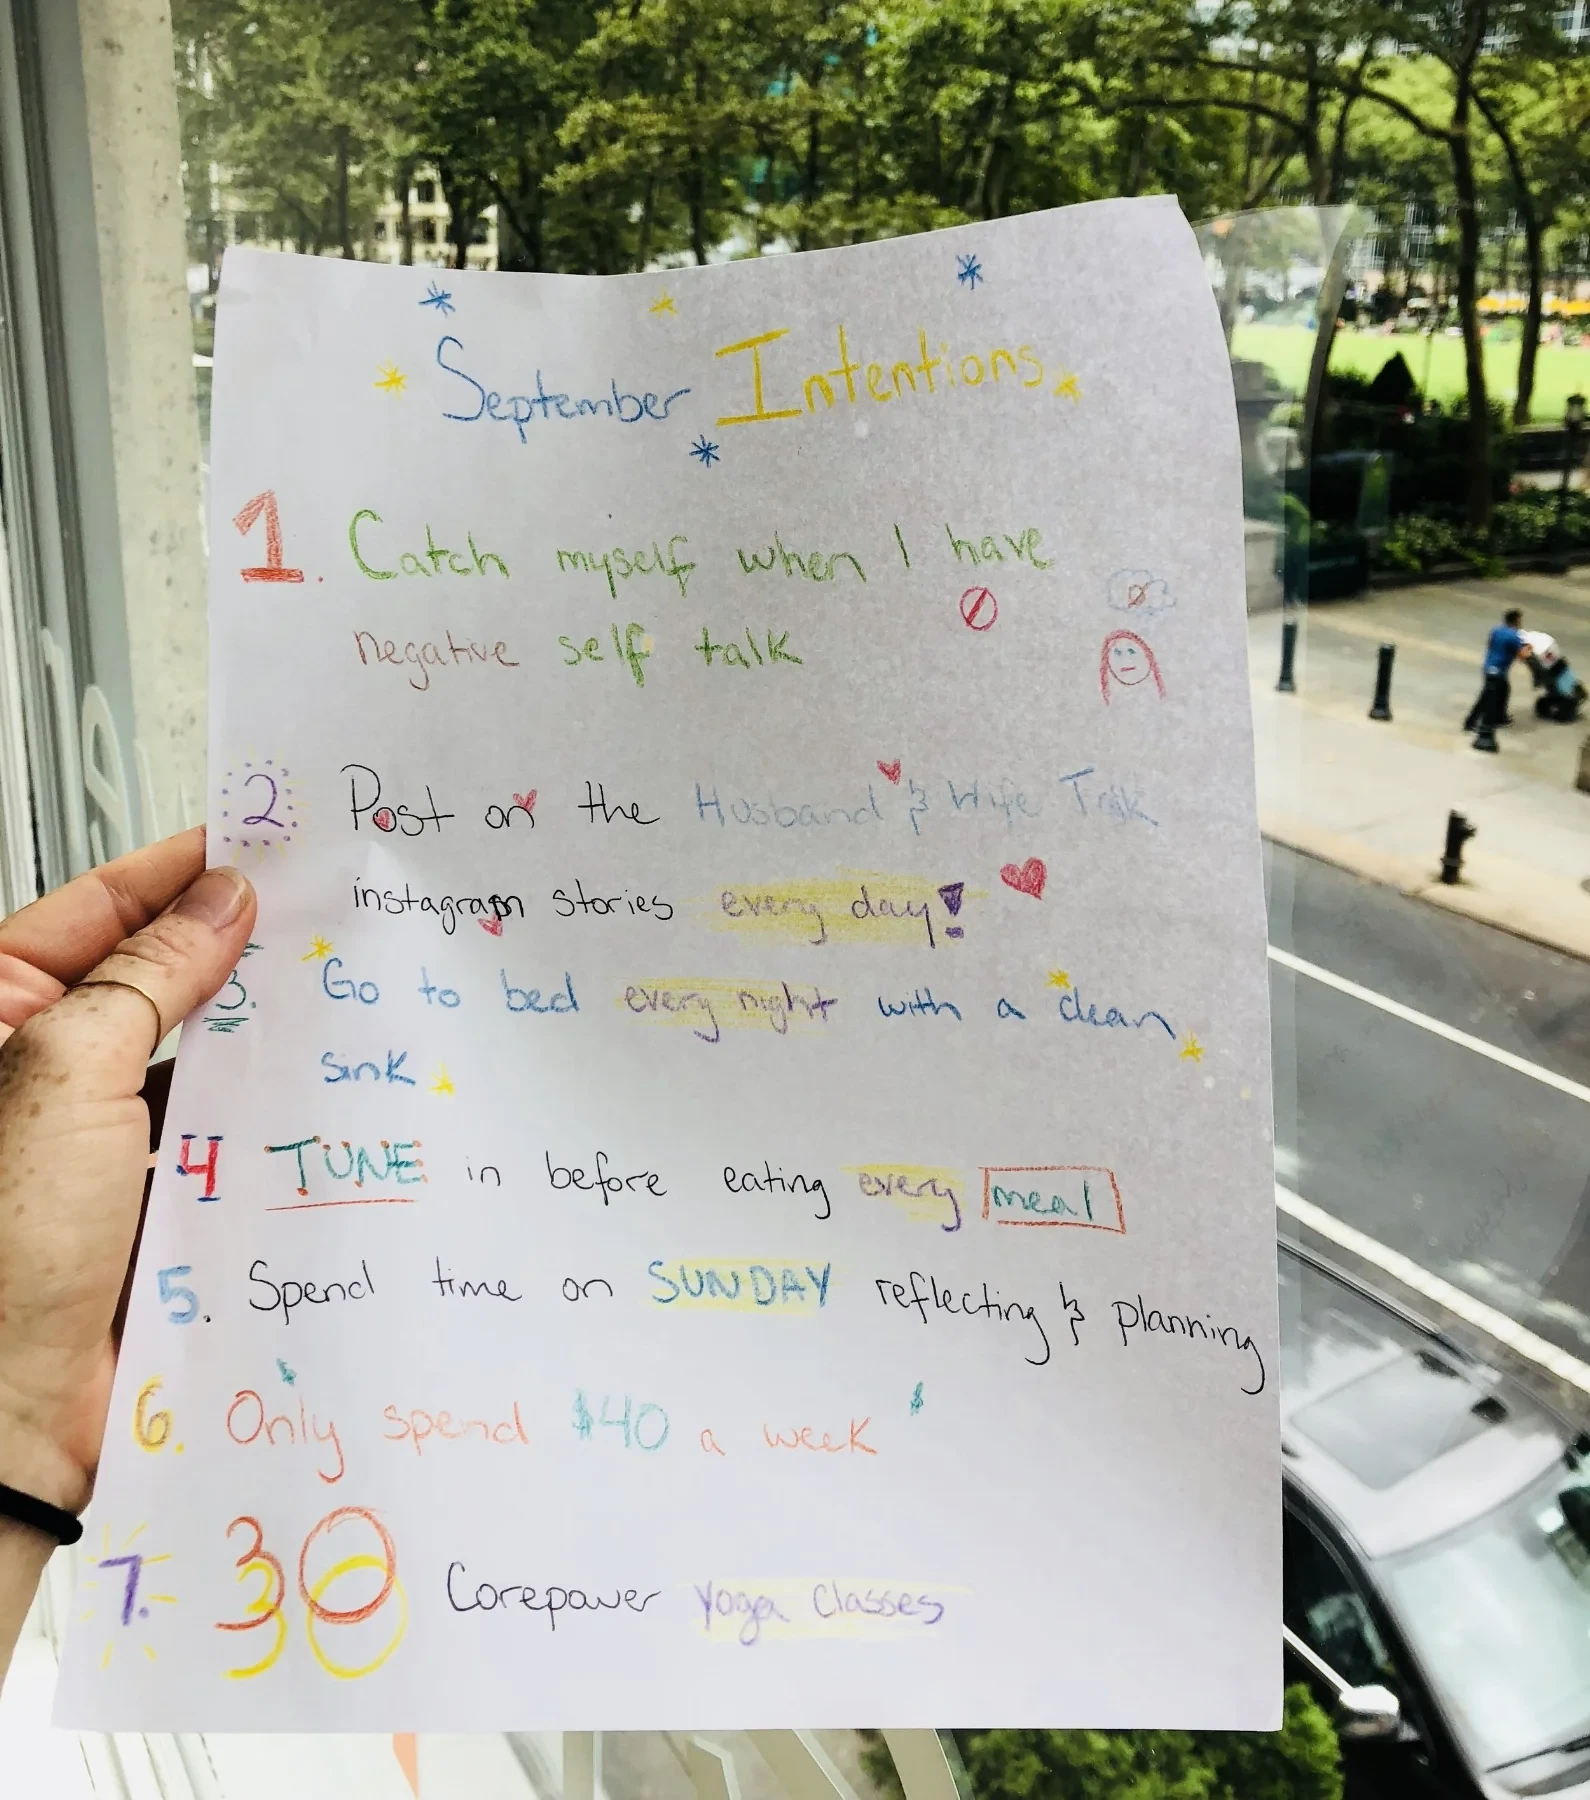 September Intentions
1. Catch myself when I have
negative self talk
2. Post on the Husband & Wife Talk
instagram stories every day!
3. Go to bed every night with a clean
sink
4 TUNE in before eating every meal
5. Spend time on SUNDAY reflecting & planning
6. Only spend $40 a week
7. 30 Corepower Yoga Classes